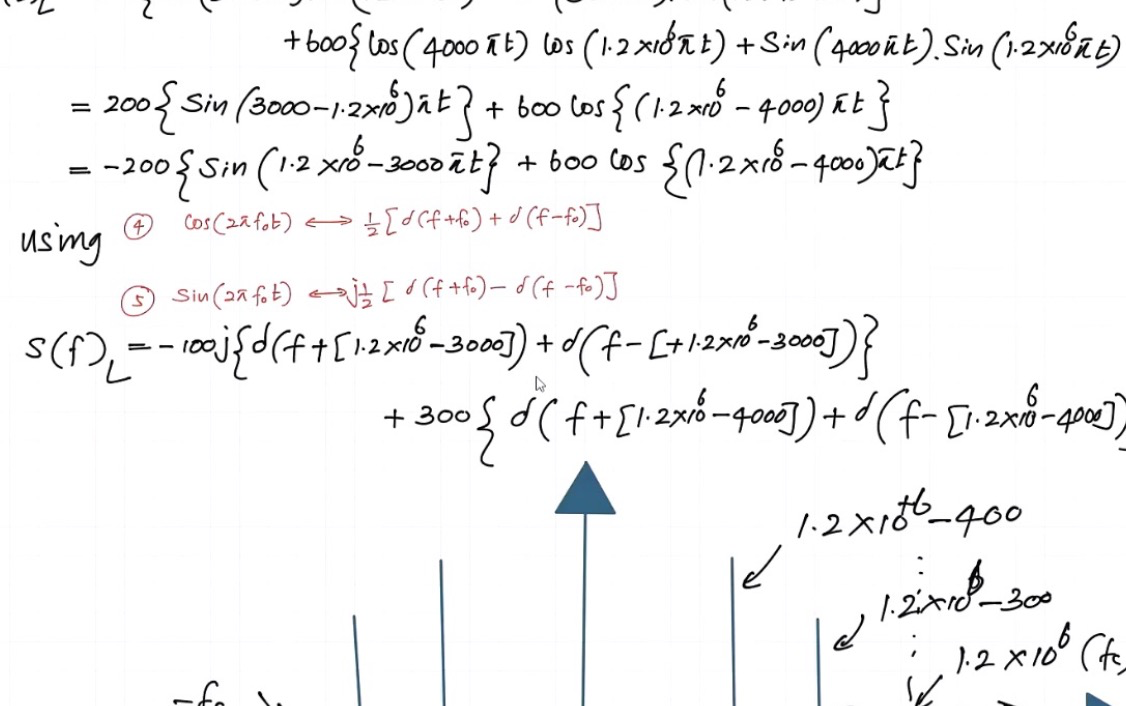 +600{Cos(4000πt) Cos(1.2×10⁶πt) + Sin(4000πt).Sin(1.2×10⁶πt)
= 200{Sin(3000-1.2×10⁶)πt} + 600 Cos{(1.2×10⁶-4000)πt}
= -200{Sin(1.2×10⁶-3000πt} + 600 Cos {(1.2×10⁶-4000)πt}
using ④ Cos(2πf₀t) ⟷ 1/2[d(f+f₀) + d(f-f₀)]
⑤ Sin(2πf₀t) ⟷ j1/2[d(f+f₀) - d(f-f₀)]
S(f)L = -100j{d(f+[1.2×10⁶-3000]) + d(f-[+1.2×10⁶-3000])}
+ 300{d(f+[1.2×10⁶-4000]) + d(f-[1.2×10⁶-4000])
1.2×10⁺⁶-400
1.2×10⁶-300
1.2×10⁶ (fc)